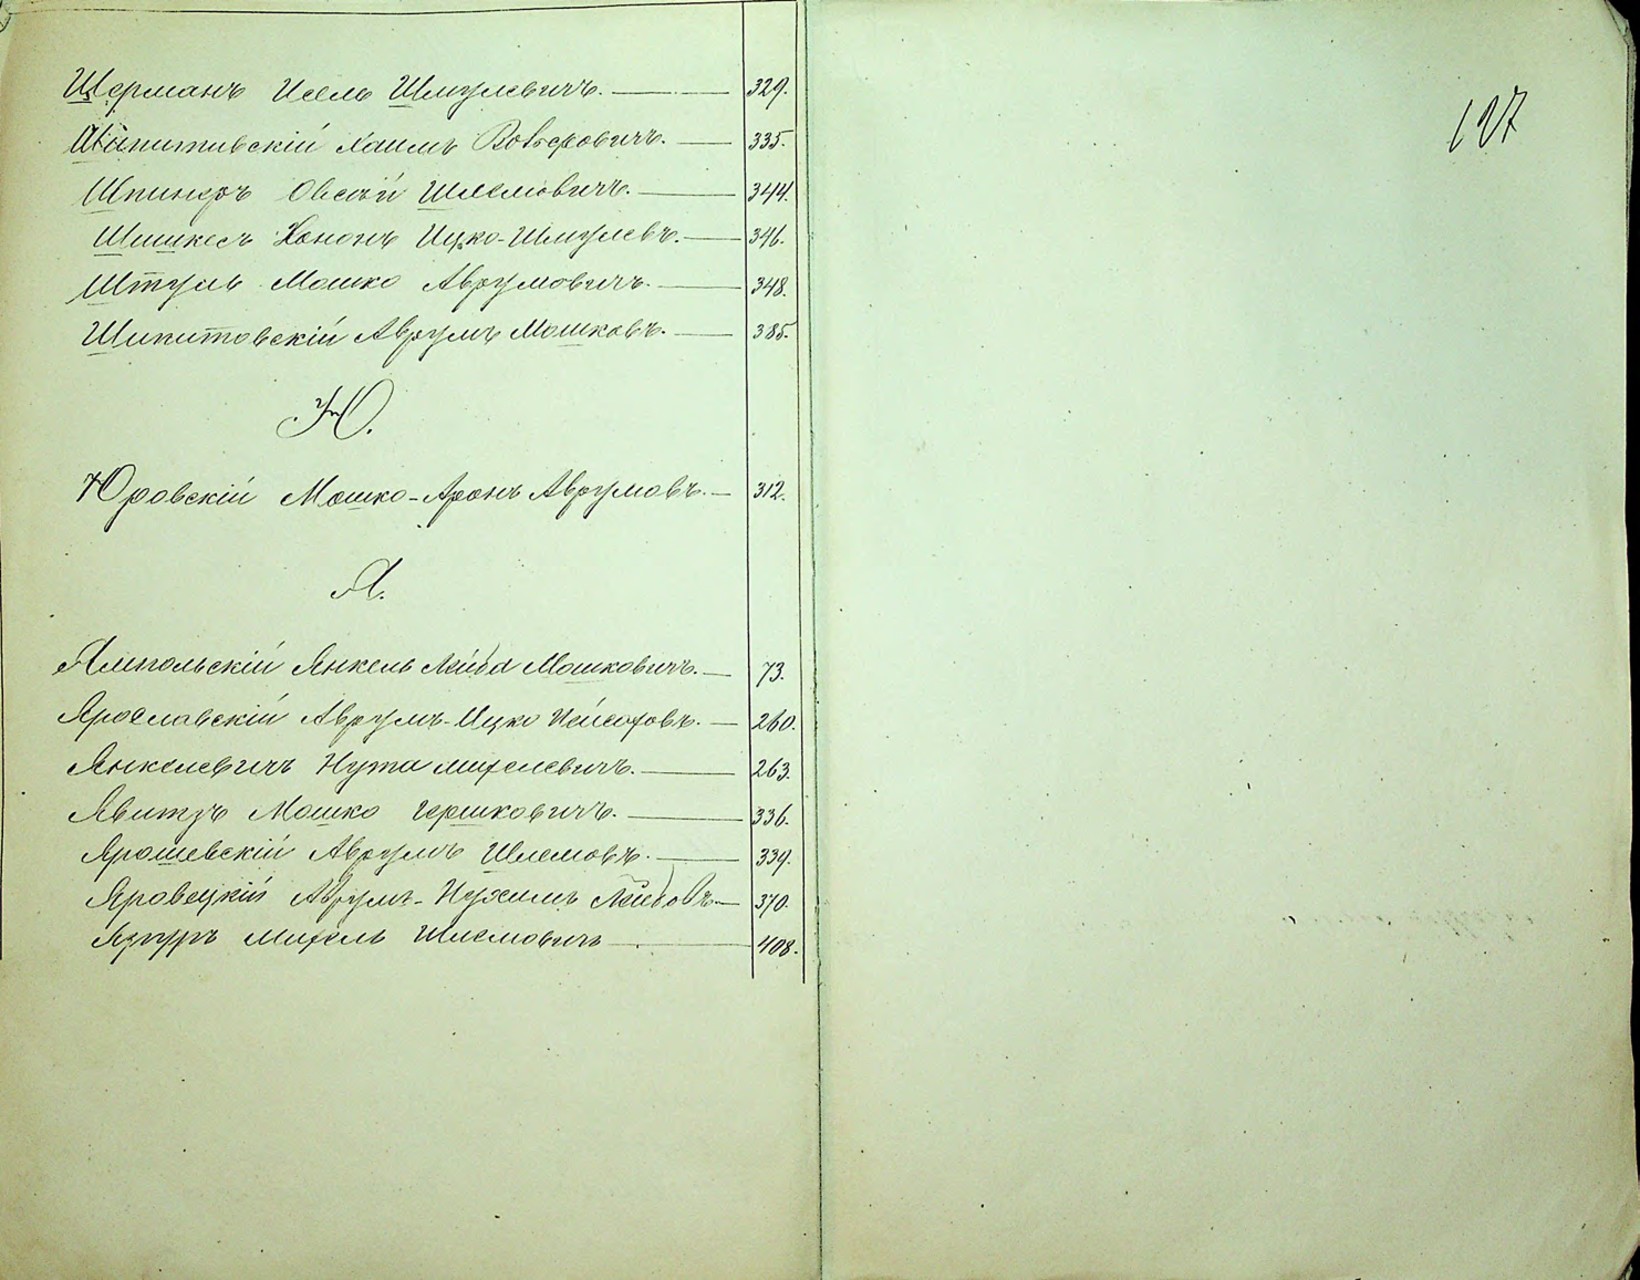 Шерманъ Исель Шмулевичъ. 329.
Шипитивскій Хаимъ Вольфовичъ. 335.
Шпинеръ Овсѣй Шлемовичъ. 344.
Шишкесъ Нононъ Ицко-Шмулевъ. 346.
Штуль Мошко Аврумовичъ. 348.
Шипитовскій Аврумъ Мошковъ. 385.
Ю.
Юровскій Мошко-Аронъ Аврумовъ. 312.
Я.
Ямпольскій Янкель Лейба Мошковичъ. 73.
Ярославскій Аврумъ-Ицко 260.
Янкелевичъ Нута Михелевичъ. 263.
Явитзъ Мошко Гершковичъ. 336.
Ярошевскій Аврумъ Шлемовъ. 339.
Яровецкій Аврумъ-Нухимъ Лейбовъ 370.
Михель Шлемовичъ 408.
127